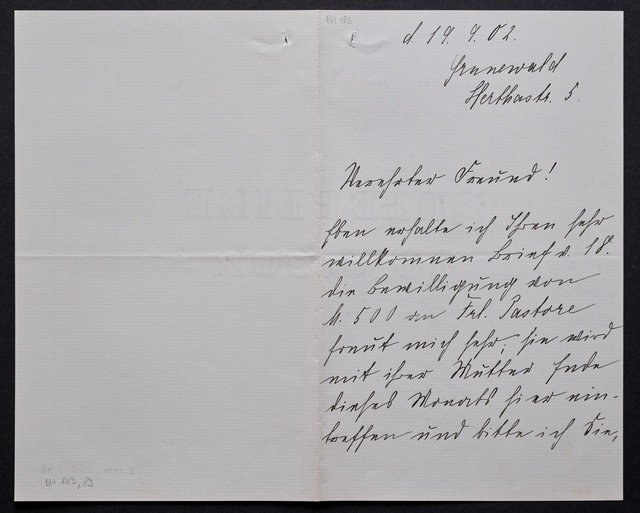 BH 183
d. 19. 9. 02.
Grunewald
Herthastr. 5.
Verehrter Freund!
Eben erhalte ich Ihren sehr
willkommnen Brief v. 18.
die Bewilligung von
M. 500 an Frl. Pastore
freut mich sehr; sie wird
mit ihrer Mutter Ende
dieses Monats hier ein-
treffen und bitte ich Sie,
BH 183,